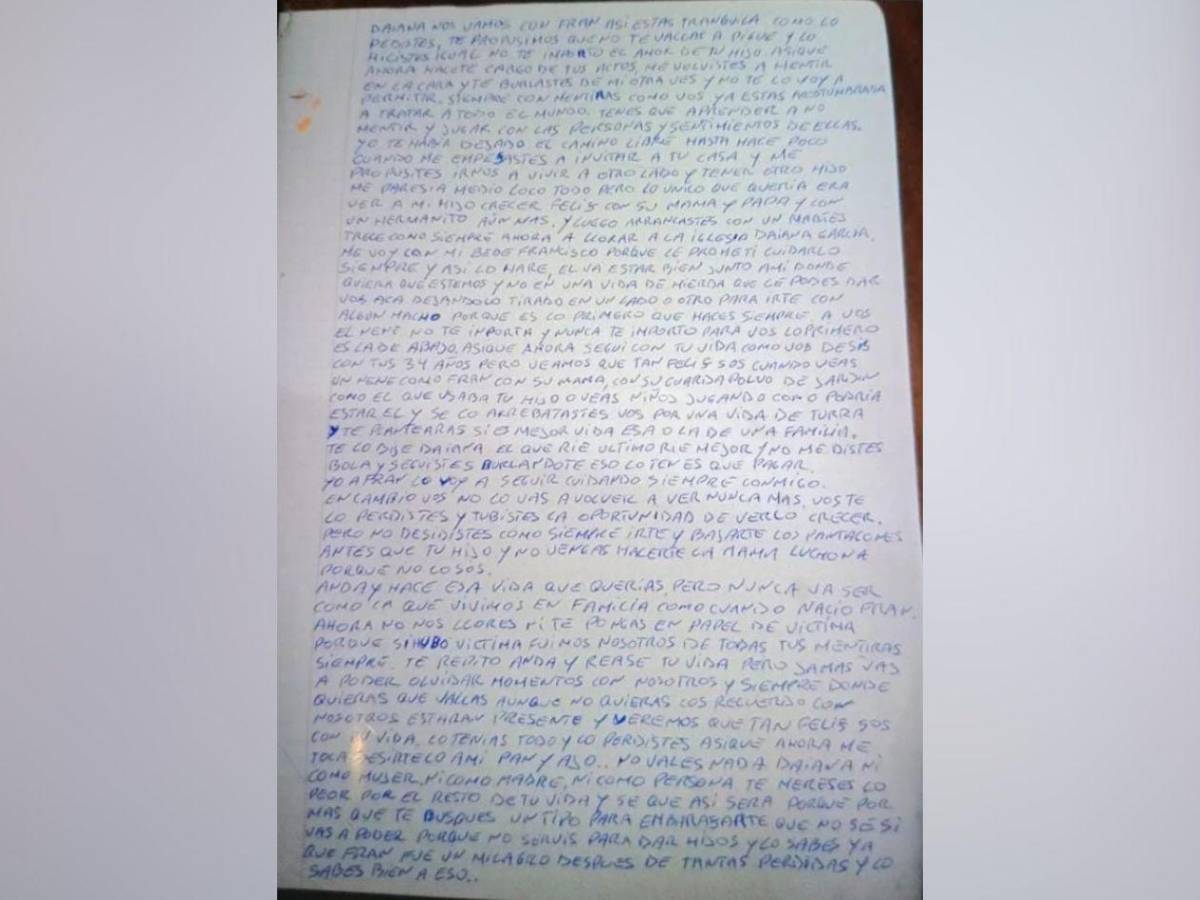 DAIANA NOS VAMOS CON FRAN ASI ESTAS TRANQUILA COMO LO
PEDISTES, TE PROPUSIMOS QUE NO TE VALLAS A PIQUE Y LO
HICISTES IGUAL NO TE IMPORTO EL AMOR DE TU HIJO. ASIQUE
AHORA HACETE CARGO DE TUS ACTOS, ME VOLVISTES A MENTIR
EN LA CARA Y TE BURLASTES DE MI OTRA VES Y NO TE LO VOY A
PERMITIR. SIEMPRE CON MENTIRAS COMO VOS YA ESTAS ACOSTUMBRADA
A TRATAR A TODO EL MUNDO. TENES QUE APRENDER A NO
MENTIR Y JUGAR CON LAS PERSONAS Y SENTIMIENTOS DE ELLAS.
YO TE HABIA DEJADO EL CAMINO LIBRE HASTA HACE POCO
CUANDO ME EMPESASTES A INVITAR A TU CASA Y ME
PROPUSITES IRNOS A VIVIR A OTRO LADO Y TENER OTRO HIJO
ME PARESIA MEDIO LOCO TODO PERO LO UNICO QUE QUERIA ERA
VER A MI HIJO CRECER FELIS CON SU MAMA Y PAPA Y CON
UN HERMANITO AÚN MAS. Y LUEGO ARRANCASTES CON UN MARTES
TRECE COMO SIEMPRE AHORA A LLORAR A LA IGLESIA DAIANA GARCIA.
ME VOY CON MI BEBE FRANCISCO PORQUE LE PROMETI CUIDARLO
SIEMPRE Y ASI LO HARE, EL VA ESTAR BIEN JUNTO AMI DONDE
QUIERA QUE ESTEMOS Y NO EN UNA VIDA DE MIERDA QUE LE PODES DAR
VOS ACA DEJANDOLO TIRADO EN UN LADO O OTRO PARA IRTE CON
ALGUN MACHO PORQUE ES LO PRIMERO QUE HACES SIEMPRE. A VOS
EL NENE NO TE INPORTA Y NUNCA TE IMPORTO PARA VOS LO PRIMERO
ES LA DE ABAJO. ASIQUE AHORA SEGUI CON TU VIDA COMO VOS DESIS
CON TUS 34 AÑOS PERO VEAMOS QUE TAN FELIS SOS CUANDO VEAS
UN NENE COMO FRAN CON SU MAMA, CON SU GUARDAPOLVO DE JARDIN
COMO EL QUE USABA TU HIJO O VEAS NIÑOS JUGANDO COMO PODRIA
ESTAR EL Y SE LO ARREBATASTES VOS POR UNA VIDA DE TURRA
Y TE PLANTEARAS SI ES MEJOR VIDA ESA O LA DE UNA FAMILIA.
TE LO DIJE DAIANA EL QUE RIE ULTIMO RIE MEJOR Y NO ME DISTES
BOLA Y SEGUISTES BURLANDOTE ESO LO TENES QUE PAGAR.
YO A FRAN LO VOY A SEGUIR CUIDANDO SIEMPRE CONMIGO.
EN CAMBIO VOS NO LO VAS A VOLVER A VER NUNCA MAS. VOS TE
LO PERDISTES Y TUBISTES LA OPORTUNIDAD DE VERLO CRECER.
PERO NO DESIDISTES COMO SIEMPRE IRTE Y BAJARTE LOS PANTALONES
ANTES QUE TU HIJO Y NO VENGAS HACERTE LA MAMA LUCHONA
PORQUE NO LO SOS.
ANDA Y HACE ESA VIDA QUE QUERIAS. PERO NUNCA VA SER
COMO LA QUE VIVIMOS EN FAMILIA COMO CUANDO NACIO FRAN.
AHORA NO NOS LLORES NI TE PONGAS EN PAPEL DE VICTIMA
PORQUE SI HUBO VICTIMA FUIMOS NOSOTROS DE TODAS TUS MENTIRAS
SIEMPRE. TE REPITO ANDA Y REASE TU VIDA PERO JAMAS VAS
A PODER OLVIDAR MOMENTOS CON NOSOTROS Y SIEMPRE DONDE
QUIERAS QUE VALLAS AUNQUE NO QUIERAS LOS RECUERDO CON
NOSOTROS ESTARAN PRESENTE Y VEREMOS QUE TAN FELIS SOS
CON TU VIDA. LO TENIAS TODO Y LO PERDISTES ASIQUE AHORA ME
TOCA DESIRTELO AMI PAN Y AJO.. NO VALES NADA DAIANA NI
COMO MUJER, NI COMO MADRE, NI COMO PERSONA TE MERESES LO
PEOR POR EL RESTO DE TU VIDA Y SE QUE ASI SERA PORQUE POR
MAS QUE TE BUSQUES UN TIPO PARA EMBARASARTE QUE NO SÉ SI
VAS A PODER PORQUE NO SERVIS PARA DAR HIJOS Y LO SABES YA
QUE FRAN FUE UN MILAGRO DESPUES DE TANTAS PERDIDAS Y LO
SABES BIEN A ESO..